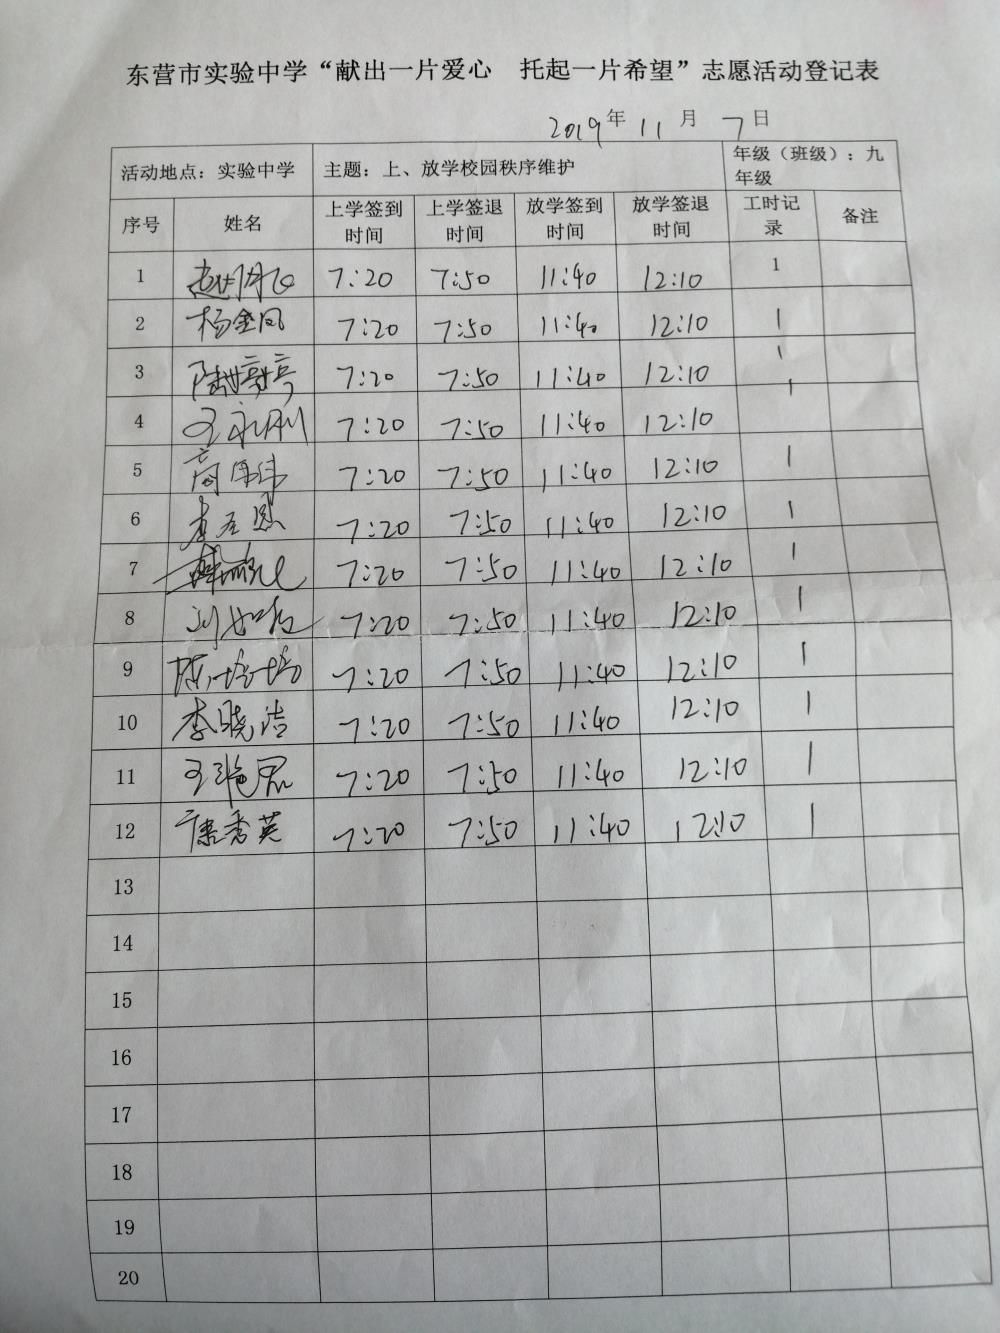 东营市实验中学“献出一片爱心 托起一片希望”志愿活动登记表
2019年 11 月 7 日
活动地点：实验中学 主题：上、放学校园秩序维护 年级（班级）：九年级
序号 姓名 上学签到时间 上学签退时间 放学签到时间 放学签退时间 工时记录 备注
1 7:20 7:50 11:40 12:10 1
2 杨金凤 7:20 7:50 11:40 12:10 1
3 陆婷婷 7:20 7:50 11:40 12:10 1
4 王永刚 7:20 7:50 11:40 12:10 1
5 7:20 7:50 11:40 12:10 1
6 7:20 7:50 11:40 12:10 1
7 7:20 7:50 11:40 12:10 1
8 7:20 7:50 11:40 12:10 1
9 陈培培 7:20 7:50 11:40 12:10 1
10 李晓洁 7:20 7:50 11:40 12:10 1
11 王艳君 7:20 7:50 11:40 12:10 1
12 康秀英 7:20 7:50 11:40 12:10 1
13
14
15
16
17
18
19
20